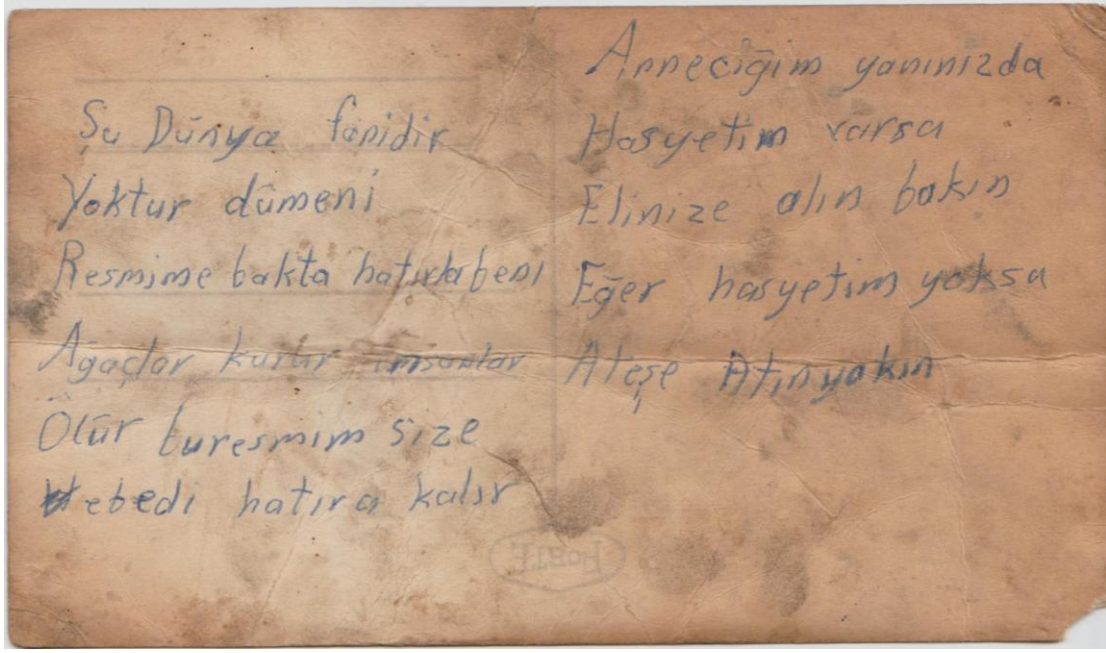 Şu Dünya fanidir
Yoktur dümeni
Resmime bakta hatırlabeni
Ağaçlar kurur imsanlar
Ölür buresmim size
ebedi hatıra kalır
Anneciğim yanınızda
Hasyetim varsa
Elinize alın bakın
Eğer hasyetim yoksa
Ateşe Atınyakın